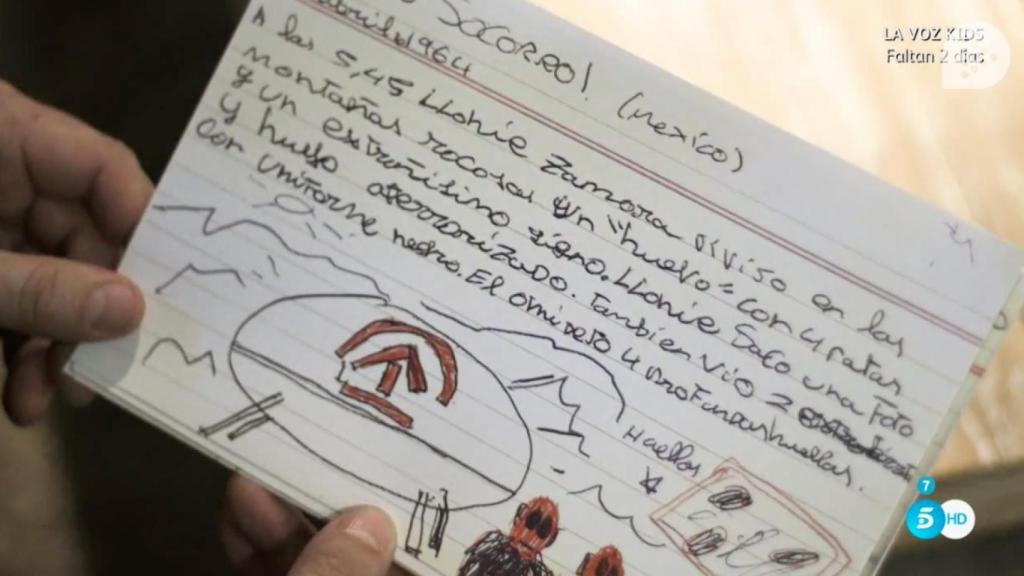 SOCORRO! (Mexico)
abril de 1964
A las 5,45 LLonie Zamora diviso en las
montañas rocosas un "huevo" con 4 patas
y un extrañisimo signo. LLonie saco una Foto
y huyo aterrorizado. Tambien vio 2
con uniforme negro. El ovni dejo 4 profundas huellas.
Huellas
LA VOZ KIDS
Faltan 2 días
7
5 HD